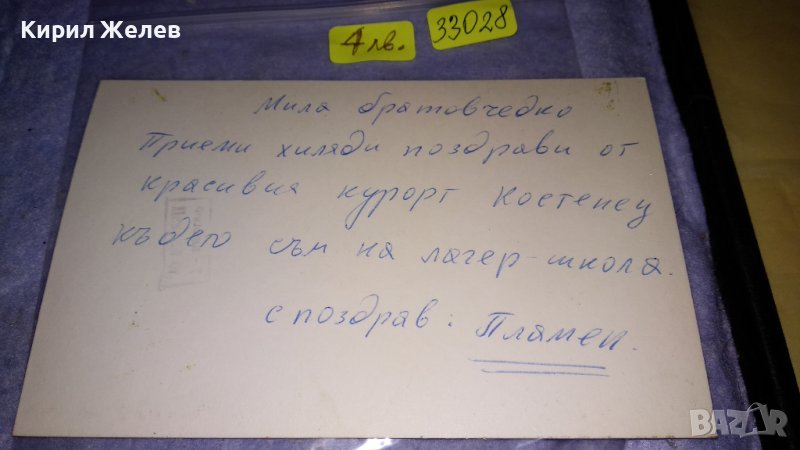 Кирил Желев
4 лв.
33028
Мила братовчедко
Приеми хиляди поздрави от
красивия курорт Костенец
където съм на лагер-школа.
с поздрав: Пламен.
BAZAR